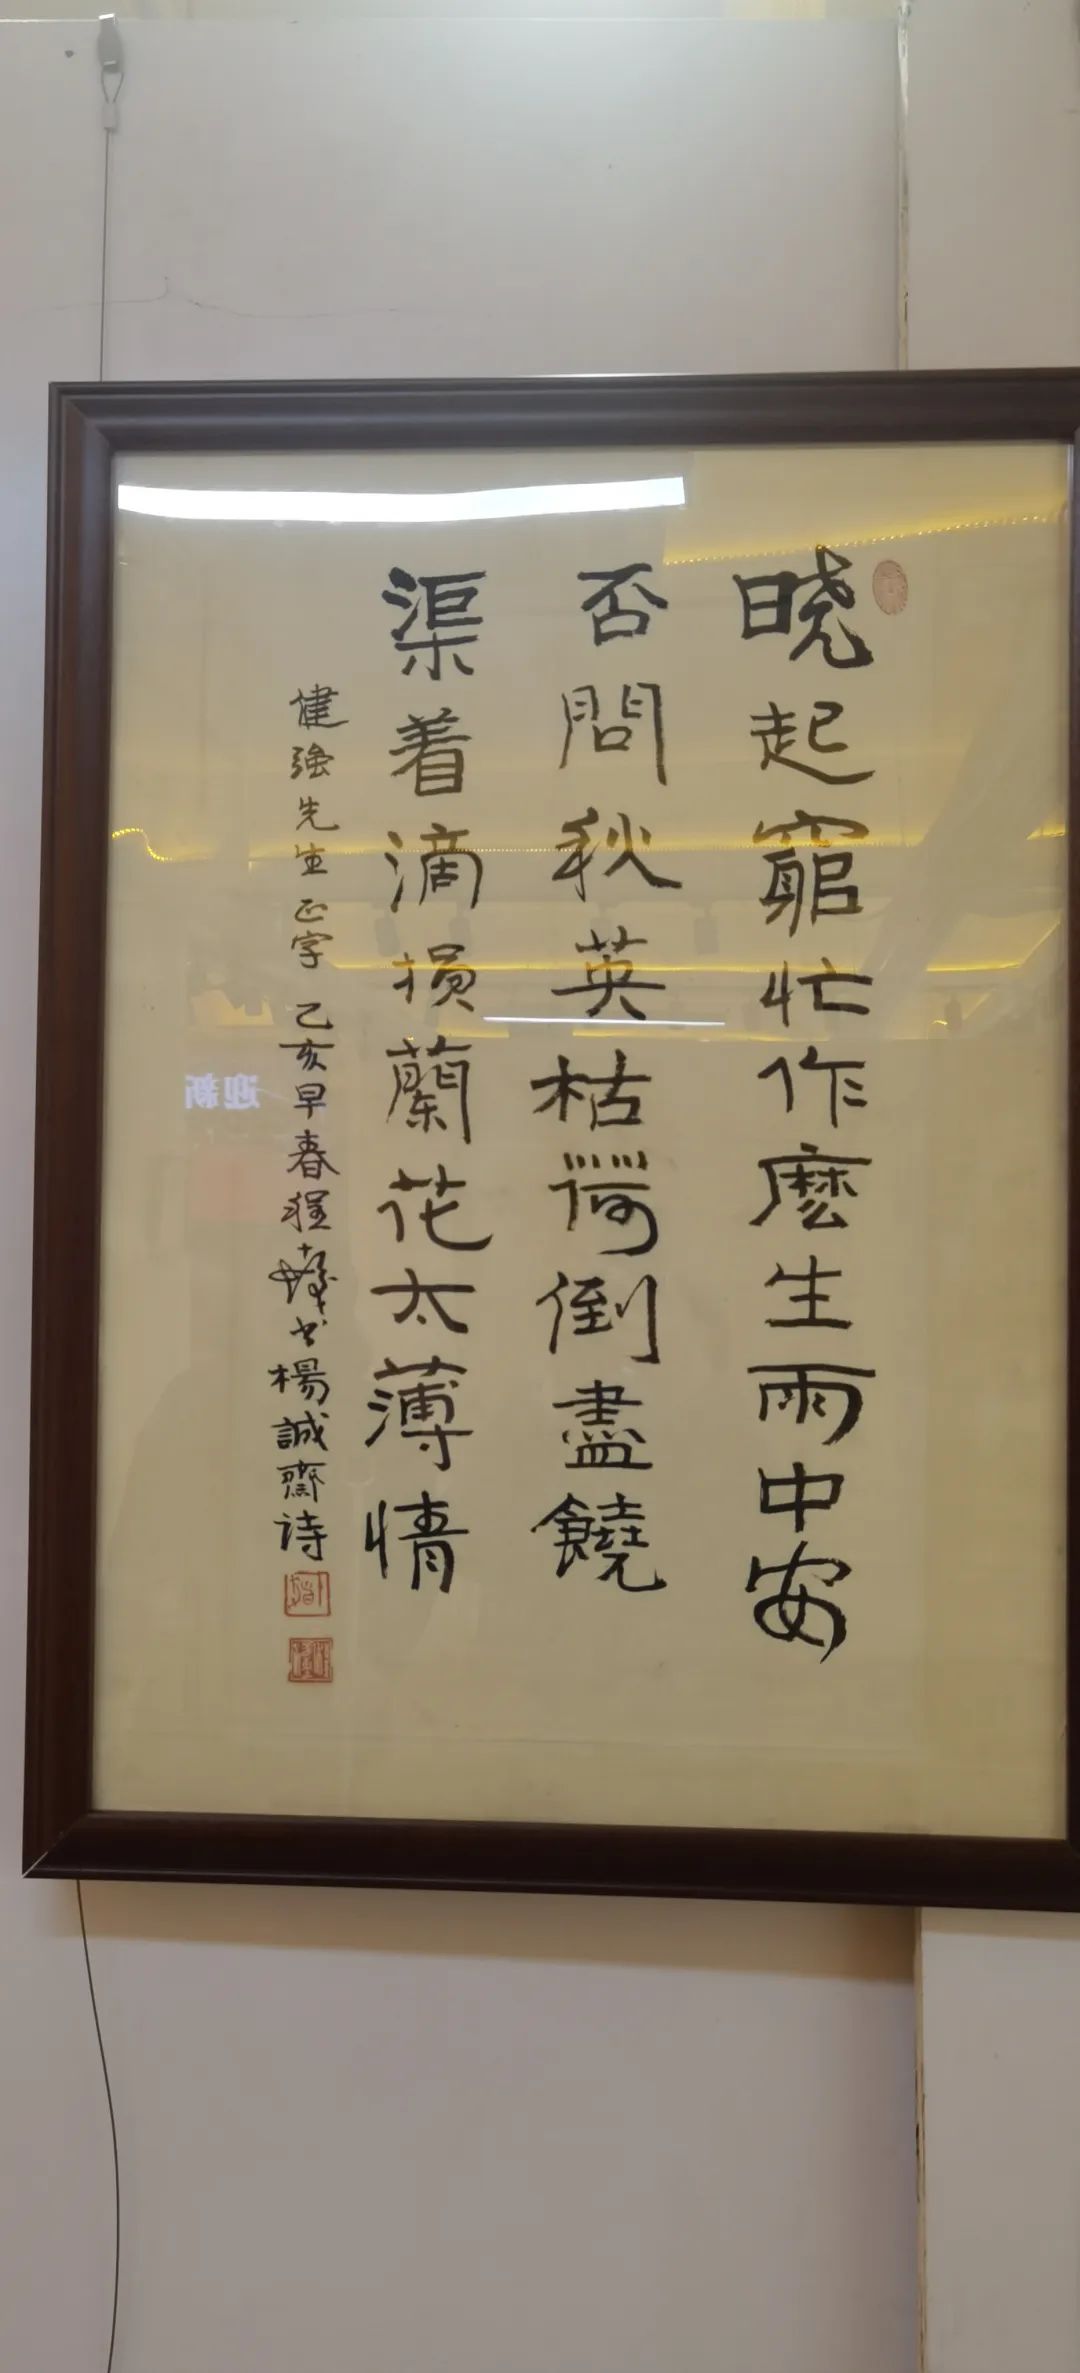 晓起窮忙作麽生雨中安
否問秋英枯荷倒盡饒
渠着滴損蘭花太薄情
健強先生正字 乙亥早春 書楊誠齋詩
迎新